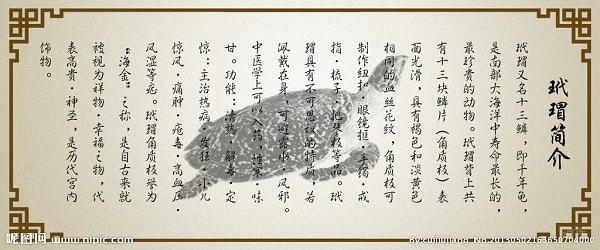 玳瑁简介
玳瑁又名十三鳞,即千年龟,
是南部大海洋中寿命最长的,
最珍贵的动物。玳瑁背上共
有十三块鳞片(角质板)表
面光滑,具有褐色和淡黄色
相同的血丝花纹,角质板可
制作纽扣·眼镜框·手镯·戒
指·梳子·把玩板等品。玳
瑁具有不可思议的特质,若
佩戴在身,可避露水·风邪。
中医学上可以入药,性寒·味
甘。功能:清热·解毒·定
惊:主治热病·发狂·小儿
惊风·痛肿·疮毒·高血压·
风湿等症。玳瑁角质板誉为
“海金”之称,是自古来就
被视为祥物·幸福之物,代
表高贵·神圣,是历代宫内
饰物。
昵图网 www.nipic.com
By:cuijinjiang